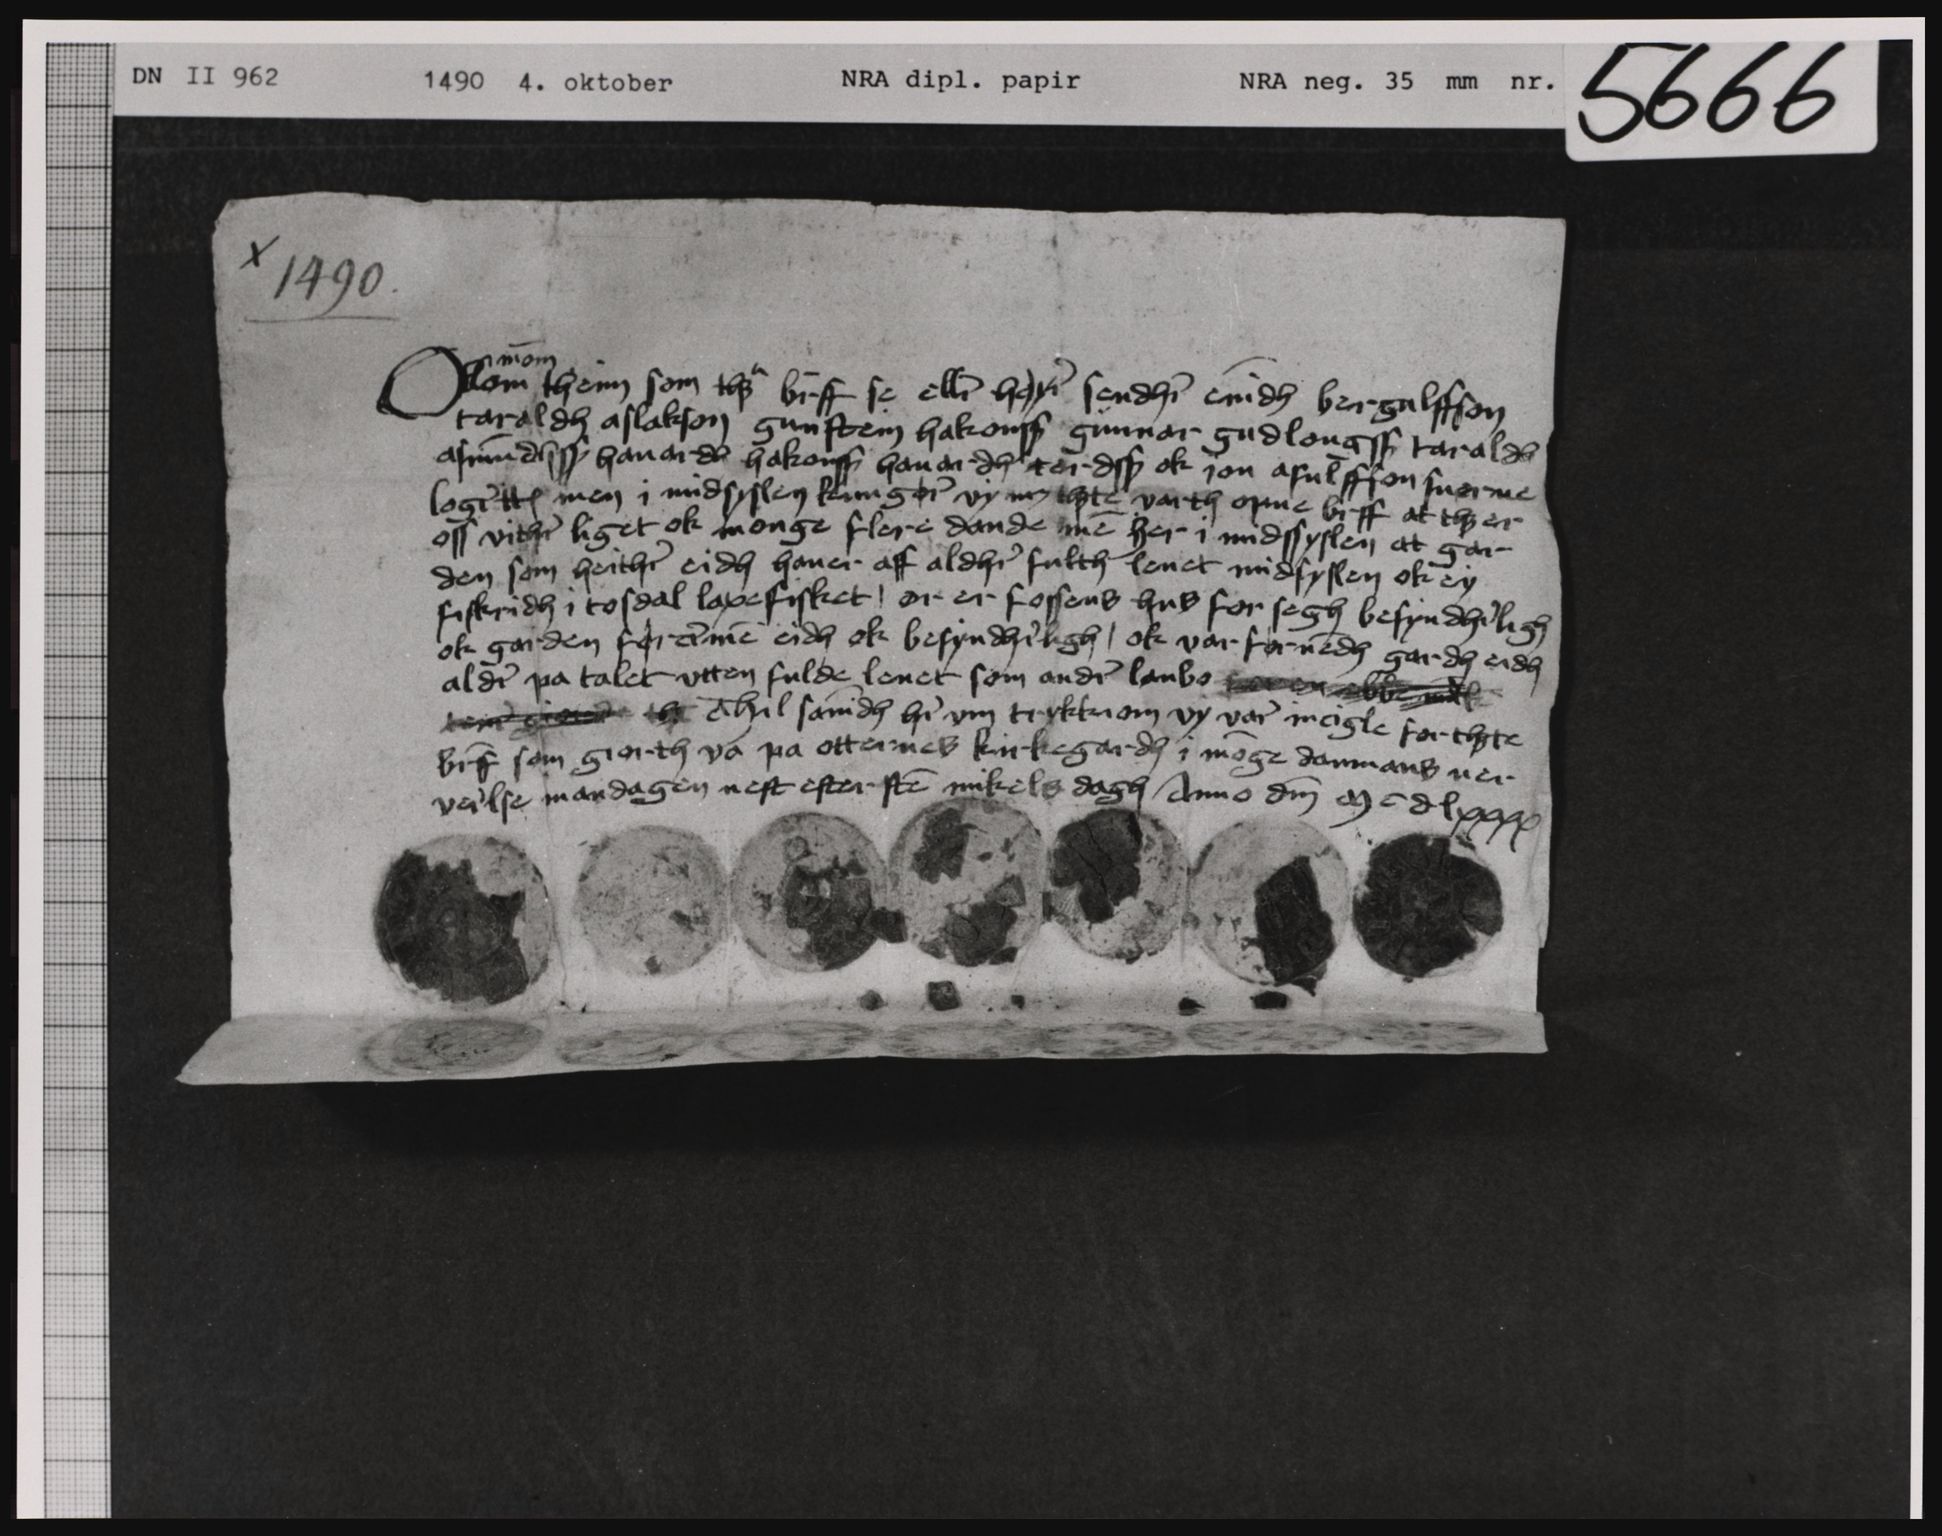 DN II 962 1490 4. oktober NRA dipl. papir NRA neg. 35 mm nr. 5666
x 1490.
mom
Ollom theim som thꝫ bꝛff se ellꝛ hør̄ sendhꝛ emīdh bergulffson
taraldh aslakson gunstein hakonsſ gunnar gudlougsſ taraldh
asmūdhsſ hauardh hakonsſ hauardh tordsſ ok jon asulffson suorne
logret̄t men j midsyslen kungør̄ vy m; thꝫte varth opne bꝛff at thꝫ er
oss vithꝛ liget ok monge flere dande mē her i midssyslen at gar
den som heithꝛ eidh hauer aff aldhꝛ fulth lenet midsyslen ok ey
fiskridh i tosdal laxefisket / or er fossens hus for segh besyndhꝛligh
ok garden forꝛme eidh ok besyndhꝛligh / ok var fornēdh gardh eidh
aldꝛ pa talet vtten fulde lenet som andꝛ lanbo
thꝫ Athil sānidh hꝛ vm tryktiom vy var̄ incigle for thꝫte
bꝛff som giorth va pa otternes kirkegardh i mōge danmans ner
verilse mandagen nest efter stē mikels dagh Anno dn̄i m c d lxxxx